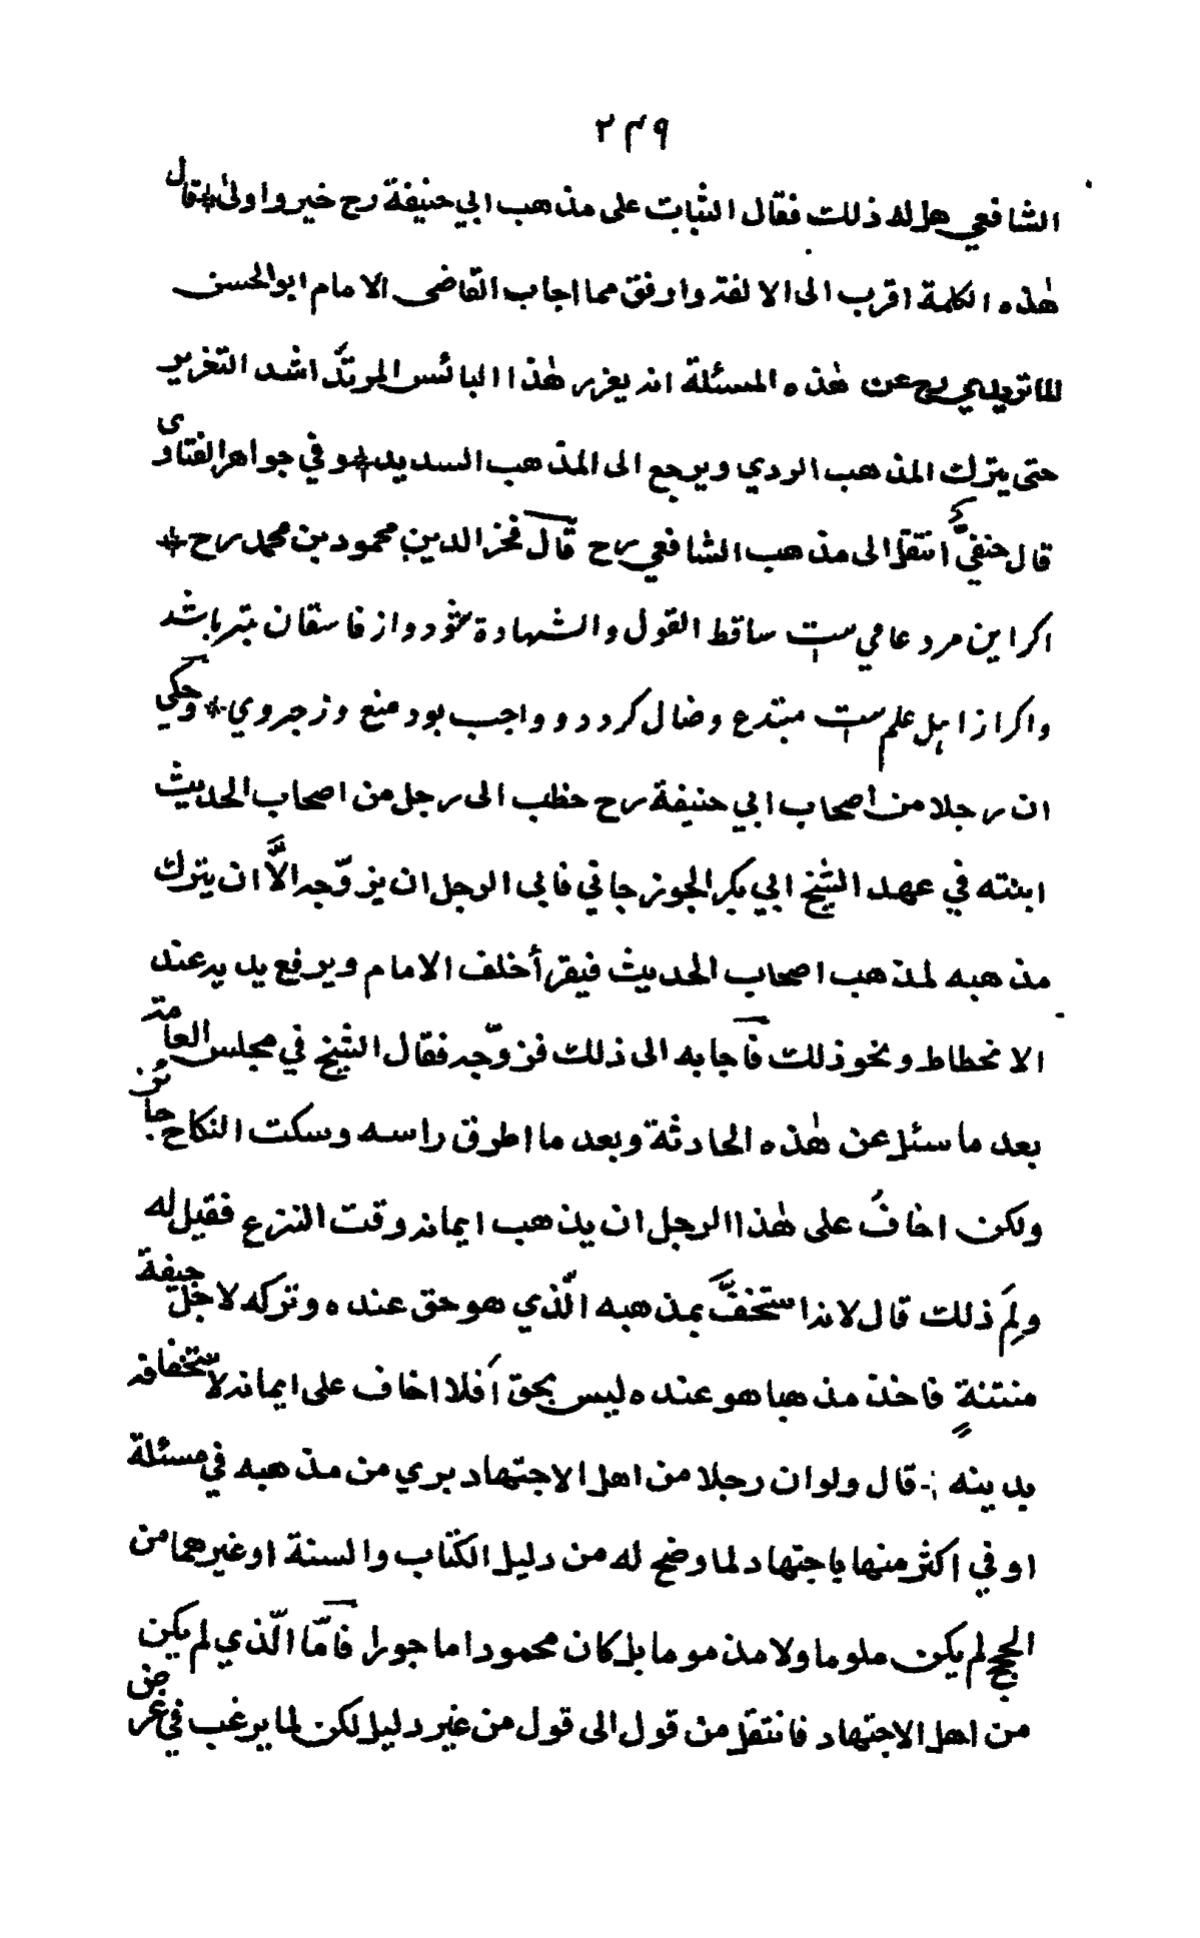 ٢٤٩
الشافعي هل له ذلك فقال الثبات على مذهب ابي حنيفة رح خير واولى * قال
هٰذه الكلمة اقرب الى الالفة واوفق مما اجاب القاضى الامام ابوالحسن
الماتريدي رح عن هٰذه المسئلة انه يعزر هٰذا البائس المرتدّ اشد التعزير
حتى يترك المذهب الردي ويرجع الى المذهب السديد * وفي جواهر الفتاوى
قال حنفيٌّ انتقل الى مذهب الشافعي رح قال فخر الدين محمود بن محمد رح *
اكر اين مرد عامي ست ساقط القول والشهادة شود واز فاسقان بتر باشد
واكر از اهل علم ست مبتدع وضال كردد و واجب بود منع وزجر وي * وحكي
ان رجلا من اصحاب ابي حنيفة رح خطب الى رجل من اصحاب الحديث
ابنته في عهد الشيخ ابي بكر الجوزجاني فابى الرجل ان يزوّجه الّا ان يترك
مذهبه لمذهب اصحاب الحديث فيقرأ خلف الامام ويرفع يديه عند
الانحطاط ونحو ذلك فاجابه الى ذلك فزوّجه فقال الشيخ في مجلس العامة
بعد ما سئل عن هٰذه الحادثة وبعد ما اطرق راسه وسكت النكاح جائز
ولكن اخافُ على هٰذا الرجل ان يذهب ايمانه وقت النزع فقيل له
ولِمَ ذلك قال لانه استخفَّ بمذهبه الّذي هو حق عنده وتركه لاجل جيفة
منتنةٍ فاخذ مذهبا هو عنده ليس بحق أفلا اخاف على ايمانه لاستخفافه
بدينه :- قال ولو ان رجلا من اهل الاجتهاد بري من مذهبه في مسئلة
او في اكثر منها باجتهاد لما وضح له من دليل الكتاب والسنة اوغيرهما من
الحجج لم يكن ملوما ولا مذموما بل كان محمودا ماجورا فامّا الّذي لم يكن
من اهل الاجتهاد فانتقل من قول الى قول من غير دليل لكن لما يرغب في غرض